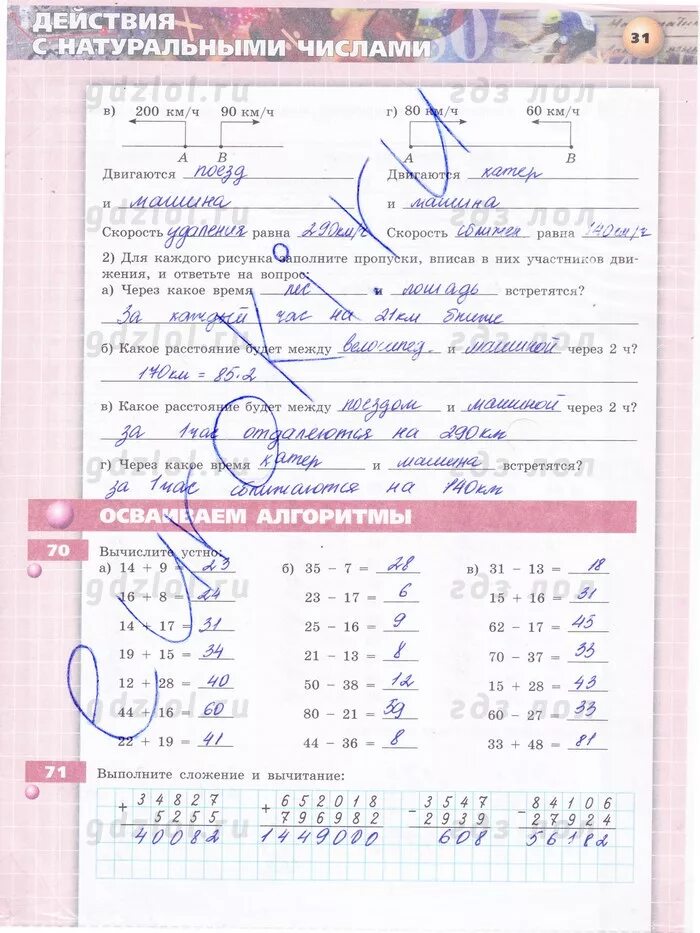 ДЕЙСТВИЯ
С НАТУРАЛЬНЫМИ ЧИСЛАМИ
31
gdzlol.ru гдз лол
в) 200 км/ч 90 км/ч г) 80 км/ч 60 км/ч
А В А В
Двигаются поезд Двигаются катер
и машина и машина
gdzlol.ru гдз лол
Скорость удаления равна 290км/ч Скорость сближ равна 140км/ч
2) Для каждого рисунка заполните пропуски, вписав в них участников дви-
жения, и ответьте на вопрос:
а) Через какое время пёс и лошадь встретятся?
За каждый час на 21км ближе
gdzlol.ru гдз лол
б) Какое расстояние будет между велосипед. и машиной через 2 ч?
170км = 85·2
в) Какое расстояние будет между поездом и машиной через 2 ч?
за 1час отдаляются на 290км
gdzlol.ru гдз лол
г) Через какое время катер и машина встретятся?
за 1час сближаются на 140км
ОСВАИВАЕМ АЛГОРИТМЫ
70 Вычислите устно:
а) 14 + 9 = 23 б) 35 − 7 = 28 в) 31 − 13 = 18
gdzlol.ru гдз лол
16 + 8 = 24 23 − 17 = 6 15 + 16 = 31
14 + 17 = 31 25 − 16 = 9 62 − 17 = 45
19 + 15 = 34 21 − 13 = 8 70 − 37 = 33
12 + 28 = 40 50 − 38 = 12 15 + 28 = 43
44 + 16 = 60 80 − 21 = 59 60 − 27 = 33
gdzlol.ru гдз лол
22 + 19 = 41 44 − 36 = 8 33 + 48 = 81
71 Выполните сложение и вычитание:
+ 34827 + 652018 − 3547 − 84106
5255 796982 2939 27924
gdzlol.ru гдз лол
40082 1449000 608 56182